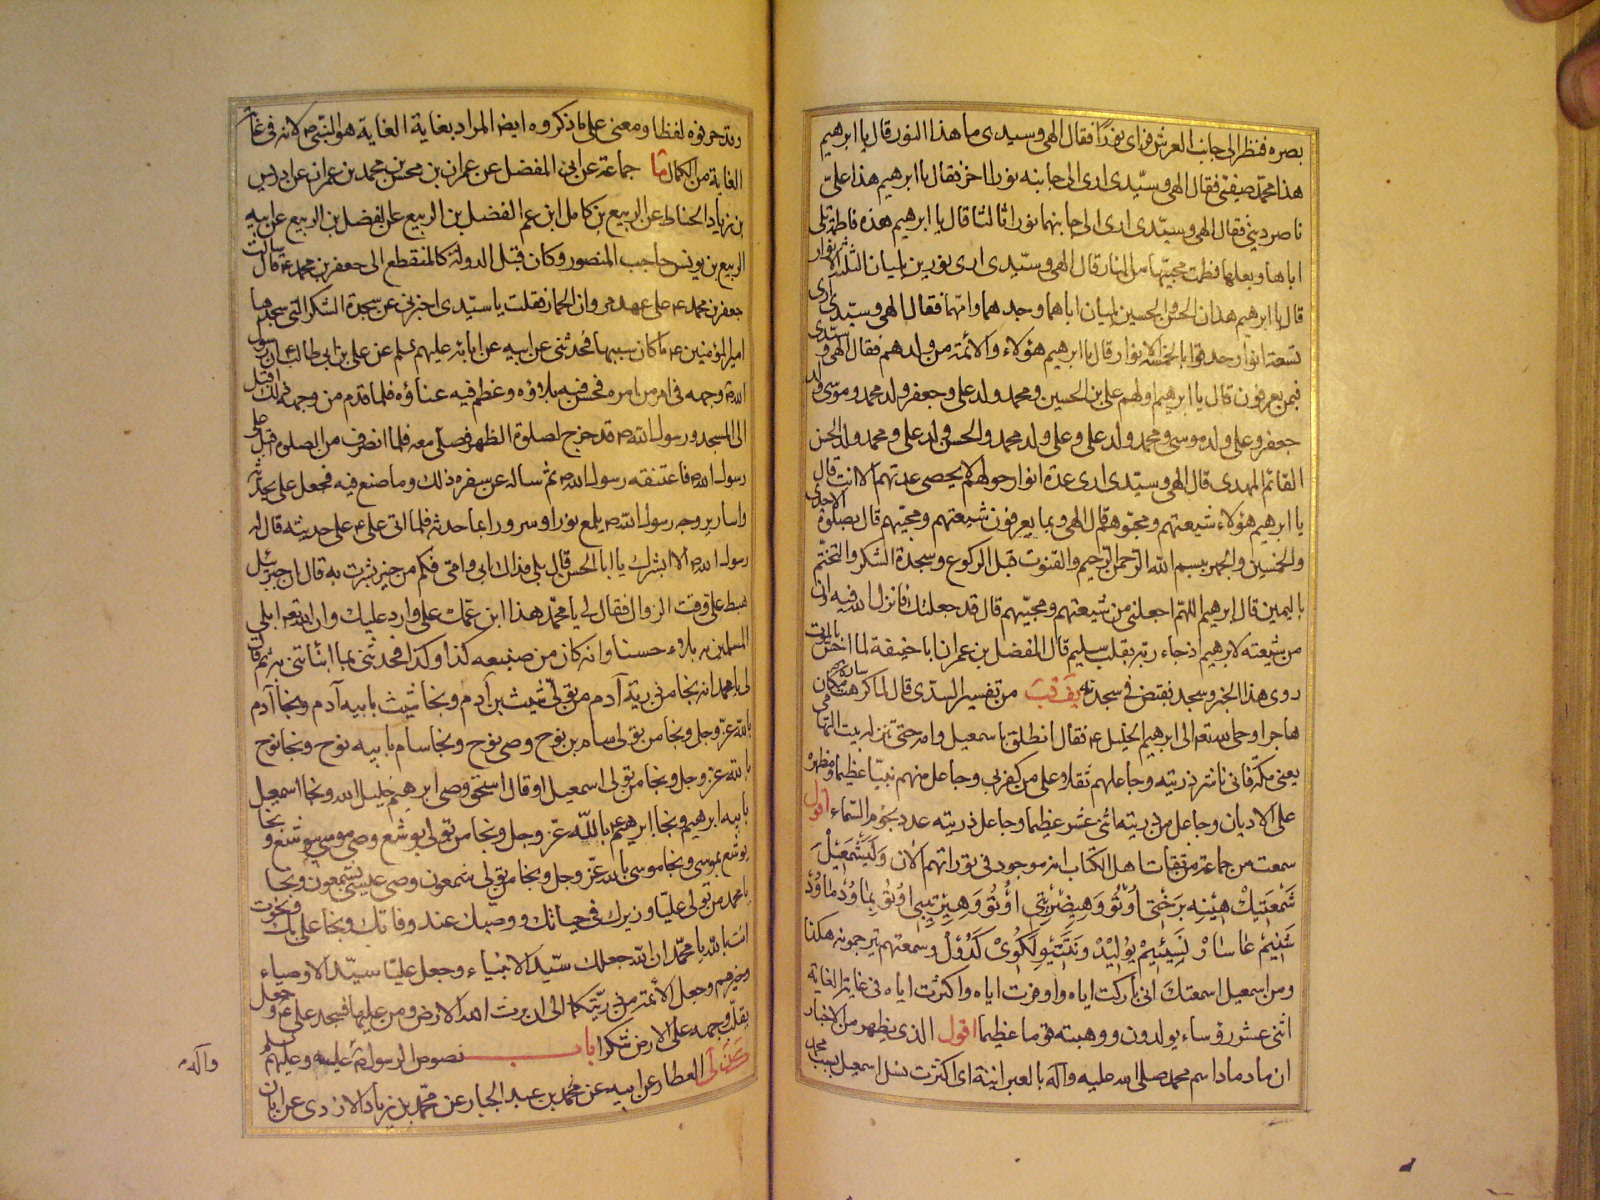 بصره فنظر الى جانب العرش فراى نورا فقال الهي وسيدي ما هذا النور قال يا ابرهيم
هذا محمد صفيي فقال الهي وسيدي ارى الى جانبه نورا اخر فقال يا ابرهيم هذا علي
ناصر ديني فقال الهي وسيدي ارى الى جانبهما نورا ثالثا قال يا ابرهيم هذه فاطمة تلي
اباها وبعلها فطمت محبيها من النار قال الهي وسيدي ارى نورين يليان الثلثة الانوار
قال يا ابرهيم هذان الحسن والحسين يليان اباهما وجدهما وامهما فقال الهي وسيدي ارى
تسعة انوار احدقوا بالخمسة الانوار قال يا ابرهيم هؤلاء الائمة من ولدهم فقال الهي وسيدي
فبمن يعرفون قال يا ابرهيم اولهم علي بن الحسين ومحمد ولد علي وجعفر ولد محمد وموسى ولد
جعفر وعلي ولد موسى ومحمد ولد علي وعلي ولد محمد والحسن ولد علي ومحمد ولد الحسن
القائم المهدي قال الهي وسيدي ارى عدة انوار حولهم لا يحصي عدتهم الا انت قال
يا ابرهيم هؤلاء شيعتهم ومحبوهم قال الهي وبما يعرفون شيعتهم ومحبيهم قال بصلوة الاحدى
والخمسين والجهر ببسم الله الرحمن الرحيم والقنوت قبل الركوع وسجدة الشكر والتختم
باليمين قال ابرهيم اللهم اجعلني من شيعتهم ومحبيهم قال قد جعلتك فانزل الله فيه وان
من شيعته لابرهيم اذ جاء ربه بقلب سليم قال المفضل بن عمران ابا حنيفة لما احس بالموت
روى هذا الخبر وسجد فقبض في سجدته من تفسير السدي قال لما كرهت سارة مكان
هاجر اوحى الله تعه الى ابرهيم الخليل ع فقال انطلق باسمعيل وامه حتى تنزله بيت التهامي
يعني مكة فاني ناشر ذريته وجاعلهم ثقلا على من كفر بي وجاعل منهم نبيا عظيما ومظهره
على الاديان وجاعل من ذريته اثنى عشر عظيما وجاعل ذريته عدد نجوم السماء اقول
سمعت من جماعة من ثقات اهل الكتاب انه موجود في توراتهم الان
وسمعتهم يترجمونه هكذا
ومن اسمعيل اسمعتك اني باركت اياه واوفرت اياه واكثرت اياه في غاية الغاية
اثنى عشر رؤساء يولدون ووهبته قوما عظيما اقول الذي يظهر من الاخبار
ان ماد ماد اسم محمد صلى الله عليه واله بالعبرانية اي اكثرت نسل اسمعيل بسبب محمد
وقد حرفوه لفظا ومعنى على ما ذكروه ايضا المراد بغاية الغاية هو النبي ص لانه في غاية
الغاية من الكمال ما جماعة عن ابي المفضل عن عمران بن محسن بن محمد بن عمران عن ادريس
بن زياد الحناط عن الربيع بن كامل ابن عم الفضل بن الربيع عن الفضل بن الربيع عن ابيه
الربيع بن يونس حاجب المنصور وكان قبل الدولة كالمنقطع الى جعفر بن محمد ع قال سالت
جعفر بن محمد ع على عهد مروان الحمار فقلت يا سيدي اخبرني عن سجدة الشكر التي سجدها
امير المؤمنين ع ما كان سببها فحدثني عن ابيه عن ابائه عليهم السلم عن علي بن ابي طالب ع ان رسول
الله ص وجهه في امر من امره فحسن فيه بلاؤه وعظم فيه عناؤه فلما قدم من وجهه ذلك اقبل
الى المسجد ورسول الله ص قد خرج لصلوة الظهر فصلى معه فلما انصرف من الصلوة اقبل على
رسول الله ص فاعتنقه رسول الله ص ثم ساله عن سفره ذلك وما صنع فيه فجعل علي يحدثه
واسارير وجه رسول الله ص يلمع نورا وسرورا بما حدثه فلما اتى علي ع على حديثه قال له
رسول الله ص الا ابشرك يا ابا الحسن قال بلى فداك ابي وامي فكم من خير بشرت به قال ان جبرئيل
هبط علي وقت الزوال فقال لي يا محمد هذا ابن عمك علي وارد عليك وان الله تعه ابلى
المسلمين به بلاء حسنا وانه كان من صنيعه كذا وكذا فحدثني بما انباتني به ثم قال
لي يا محمد انه نجا من ذرية آدم من تولى شيث بن آدم ونجا شيث بابيه آدم ونجا آدم
بالله عز وجل ونجا من تولى سام بن نوح وصي نوح ونجا سام بابيه نوح ونجا نوح
بالله عز وجل ونجا من تولى اسمعيل او قال اسحق وصي ابرهيم خليل الله ونجا اسمعيل
بابيه ابرهيم ونجا ابرهيم ع بالله عز وجل ونجا من تولى يوشع وصي موسى بيوشع ونجا
يوشع بموسى ونجا موسى بالله عز وجل ونجا من تولى شمعون وصي عيسى بشمعون ونجا
يا محمد من تولى عليا وزيرك في حياتك ووصيك عند وفاتك ونجا علي بك ونجوت
انت بالله يا محمد ان الله جعلك سيد الانبياء وجعل عليا سيد الاوصياء
وخيرهم وجعل الائمة من ذريتكما الى ان يرث الله الارض ومن عليها فسجد علي ع وجعل
يقلب وجهه على الارض شكرا باب نصوص الرسول ص عليه وعليهم السلم
العطار عن ابيه عن محمد بن عبد الجبار عن محمد بن زياد الازدي عن ابان
وآله